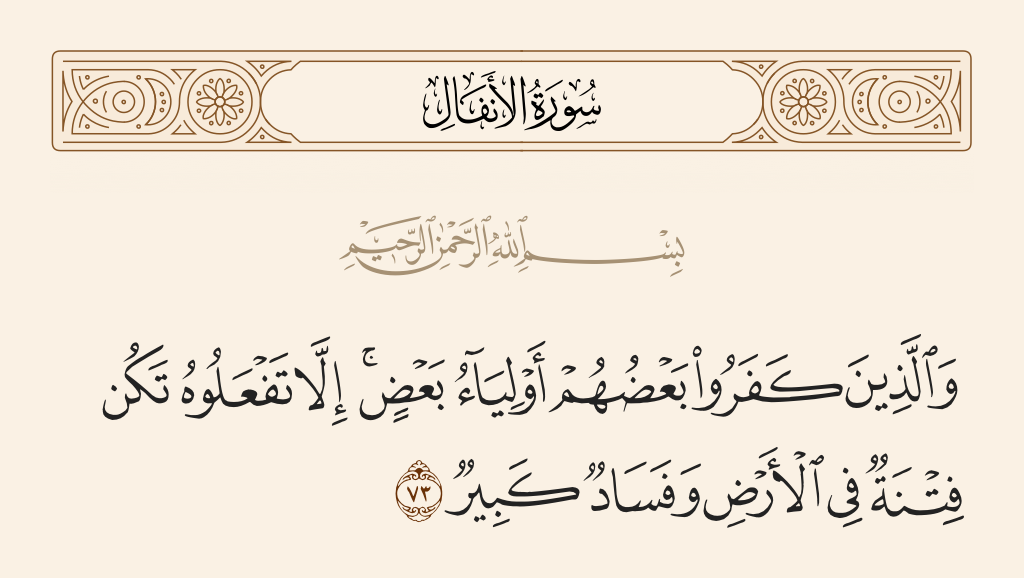 سُورَةُ الأَنفَالِ
بِسْمِ ٱللَّهِ ٱلرَّحْمَٰنِ ٱلرَّحِيمِ
وَٱلَّذِينَ كَفَرُوا۟ بَعْضُهُمْ أَوْلِيَآءُ بَعْضٍ ۚ إِلَّا تَفْعَلُوهُ تَكُن
فِتْنَةٌ فِى ٱلْأَرْضِ وَفَسَادٌ كَبِيرٌ ٧٣